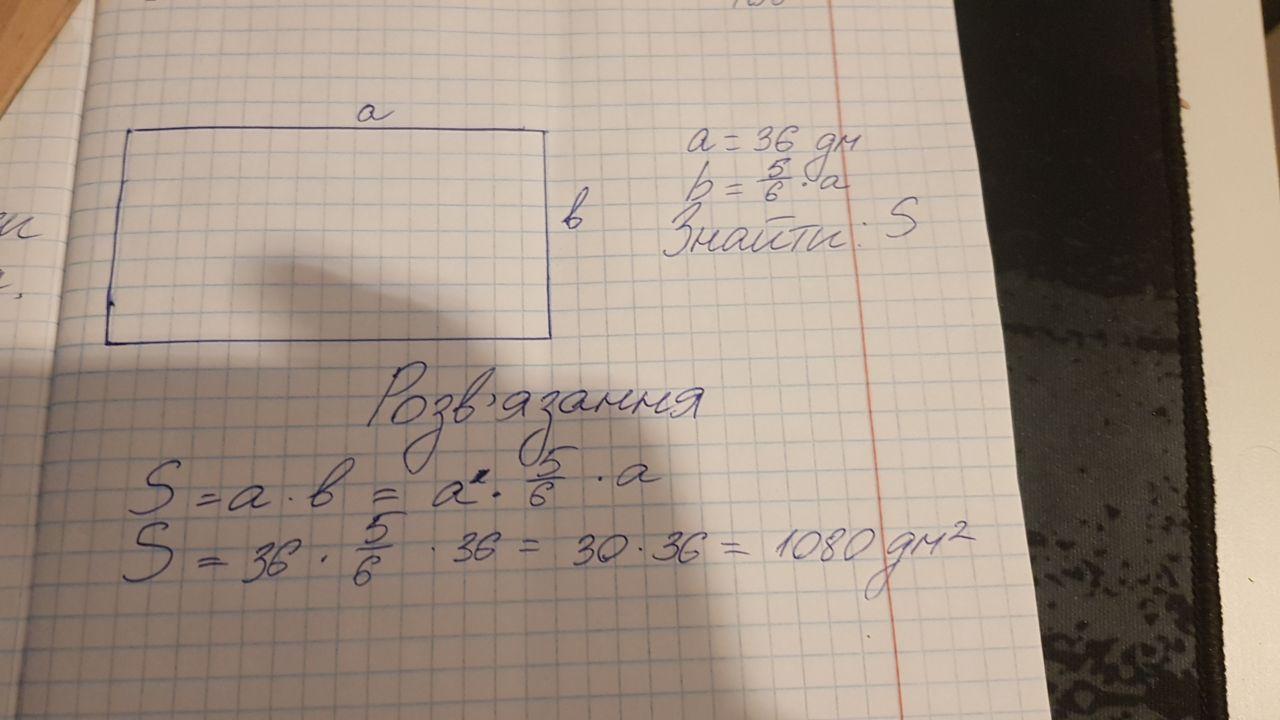 a
a = 36 дм
b = 5/6 · a
в
Знайти: S
Розв'язання
S = a · в = a · 5/6 · a
S = 36 · 5/6 · 36 = 30 · 36 = 1080 дм²